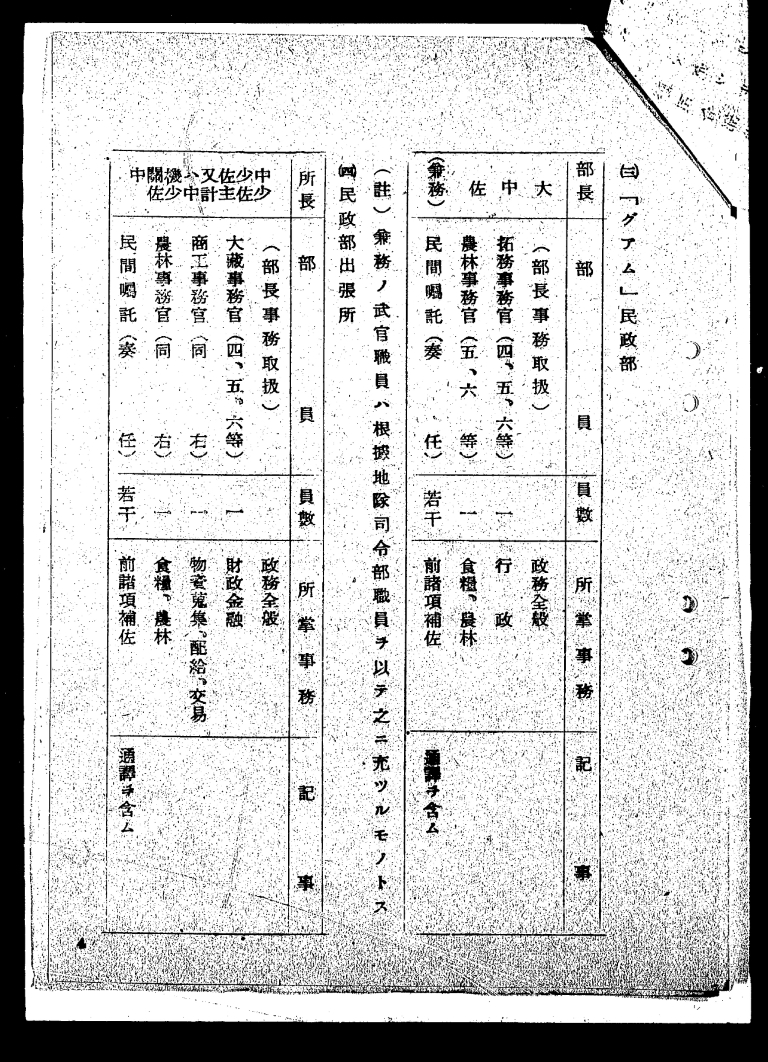 ㈢「グアム」民政部
部長　部員　員數　所掌事務　記事
大中佐（兼務）
（部長事務取扱）　政務全般
拓務事務官（四、五、六等）　一　行政
農林事務官（五、六等）　一　食糧、農林
民間囑託（奏任）　若干　前諸項補佐　通譯ヲ含ム
（註）兼務ノ武官職員ハ根據地隊司令部職員ヲ以テ之ニ充ツルモノトス
㈣民政部出張所
所長　部員　員數　所掌事務　記事
中少佐又ハ機關中
少佐主計中少佐
（部長事務取扱）　政務全般
大藏事務官（四、五、六等）　一　財政金融
商工事務官（同右）　一　物資蒐集、配給、交易
農林事務官（同右）　一　食糧、農林
民間囑託（奏任）　若干　前諸項補佐　通譯ヲ含ム
4